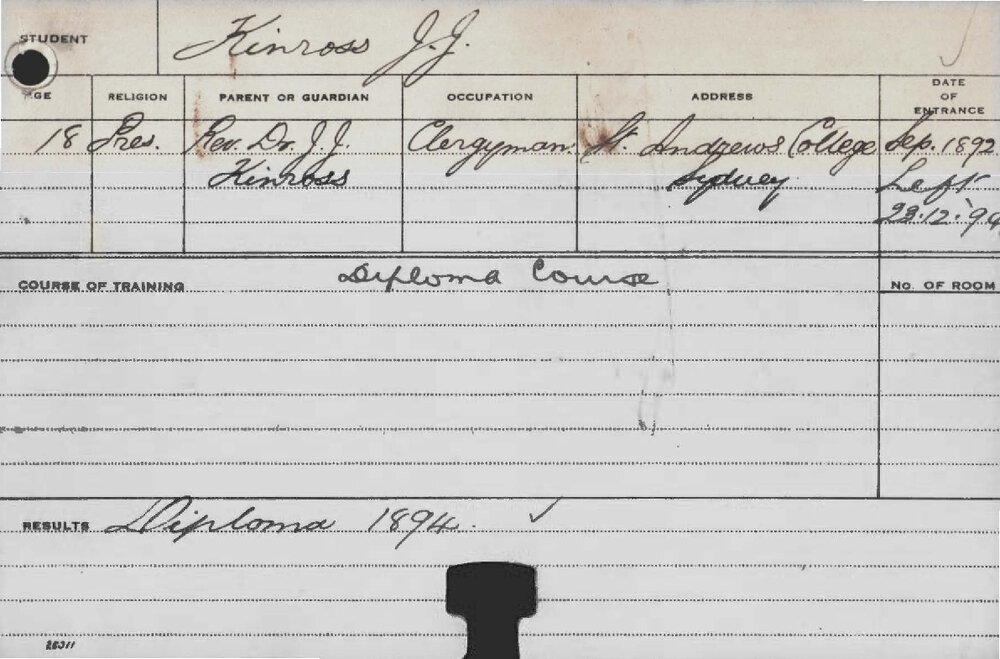 STUDENT Kinross J.J.
AGE RELIGION PARENT OR GUARDIAN OCCUPATION ADDRESS DATE OF ENTRANCE
18 Pres. Rev. Dr. J.J. Clergyman. St. Andrews College Sep. 1892
Kinross Sydney Left
22.12.'94
COURSE OF TRAINING Diploma Course No. OF ROOM
RESULTS Diploma 1894.